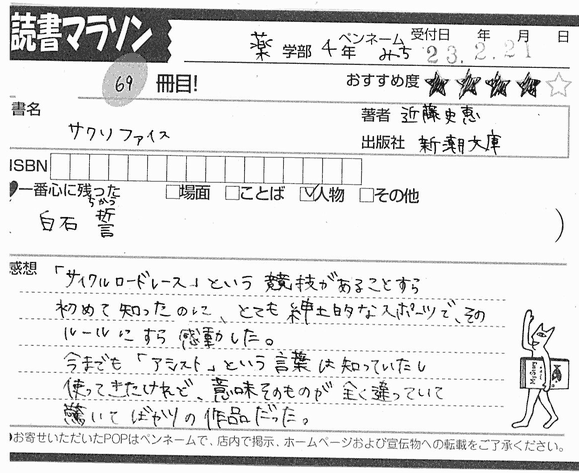 読書マラソン
薬 学部 4年 ペンネーム みち 受付日 年 月 日
23.2.21
69 冊目! おすすめ度 ★★★★☆
書名 サクリファイス
著者 近藤史恵
出版社 新潮文庫
ISBN
一番心に残った □場面 □ことば ☑人物 □その他
ちかう
白石 誓 )
感想 「サイクルロードレース」という競技があることすら
初めて知ったのに、とても紳士的なスポーツで、その
ルールにすら感動した。
今までも「アシスト」という言葉は知っていたし
使ってきたけれど、意味そのものが全く違っていて
驚いてばかりの作品だった。
お寄せいただいたPOPはペンネームで、店内で掲示、ホームページおよび宣伝物への転載をご了承ください。